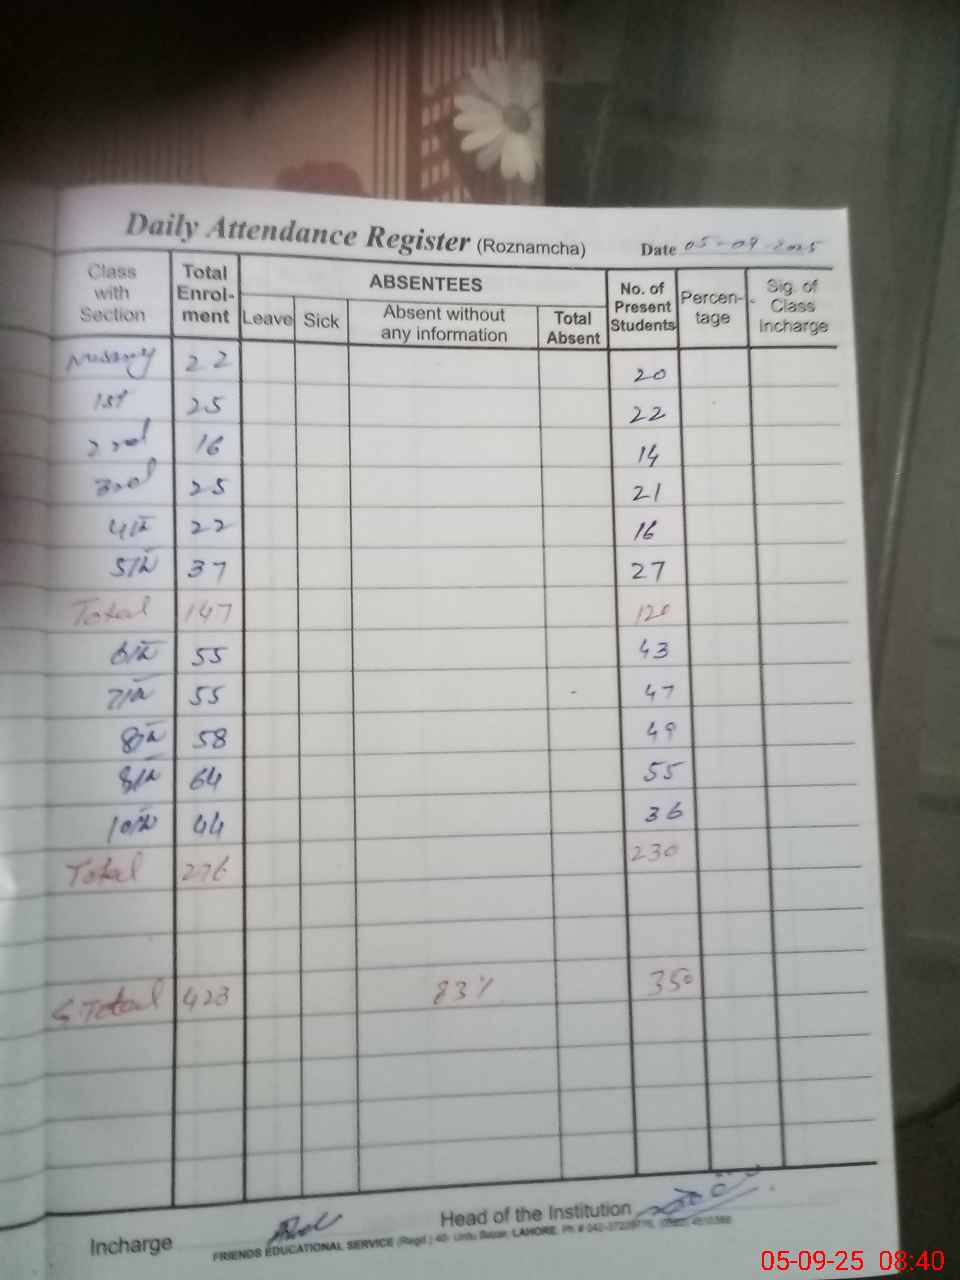 Daily Attendance Register (Roznamcha) Date 05-09-2025
Class with Section Total Enrol-ment ABSENTEES No. of Present Students Percen-tage Sig. of Class Incharge
Leave Sick Absent without any information Total Absent
Nursery 22 20
1st 25 22
2nd 16 14
3rd 25 21
4th 22 16
5th 37 27
Total 147 120
6th 55 43
7th 55 47
8th 58 49
64 55
10th 44 36
Total 276 230
G.Total 423 83% 350
Incharge Head of the Institution
FRIENDS EDUCATIONAL SERVICE (Regd.) 40- Urdu Bazar, LAHORE. Ph #
05-09-25 08:40